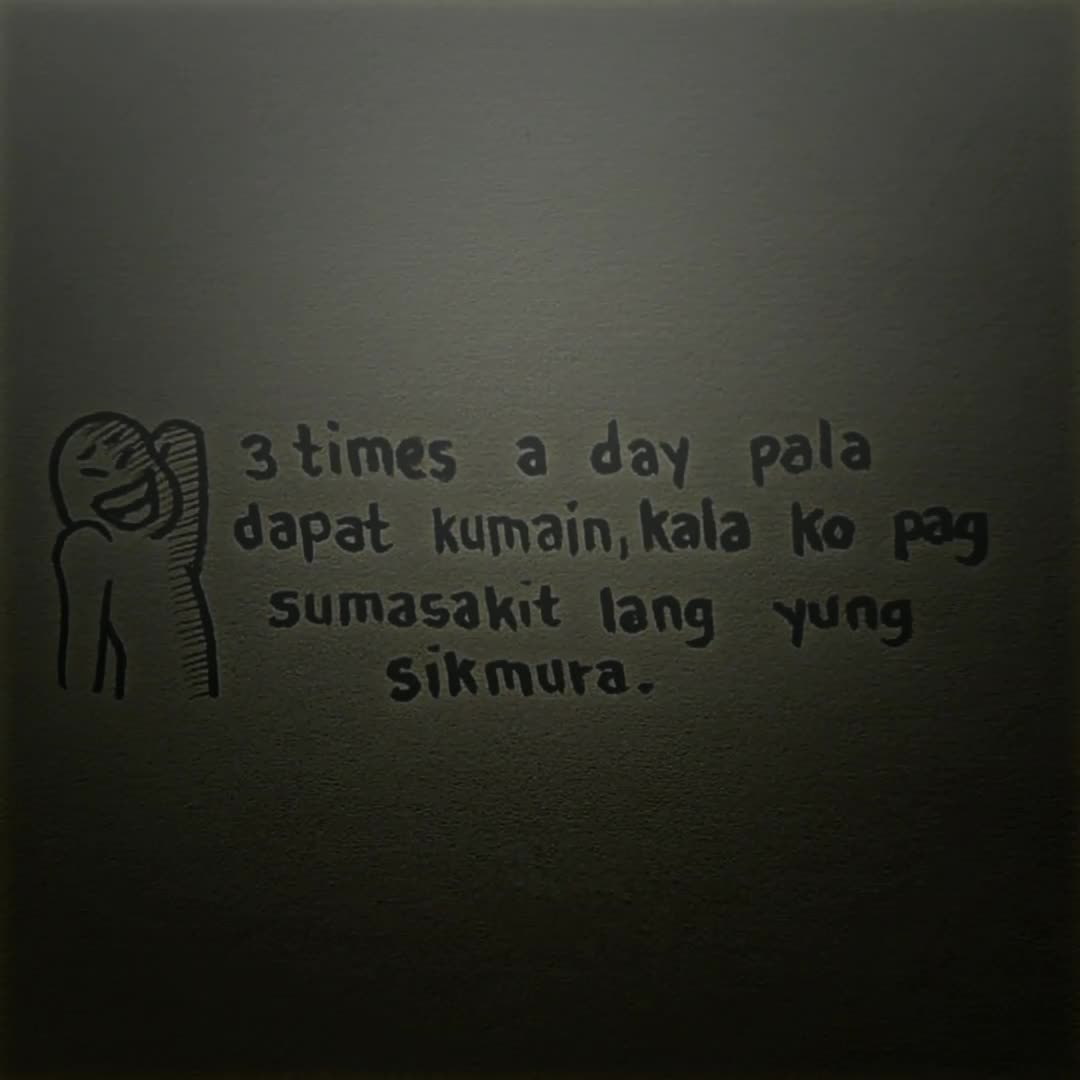 3 times a day pala
dapat kumain, kala ko pag
sumasakit lang yung
sikmura.